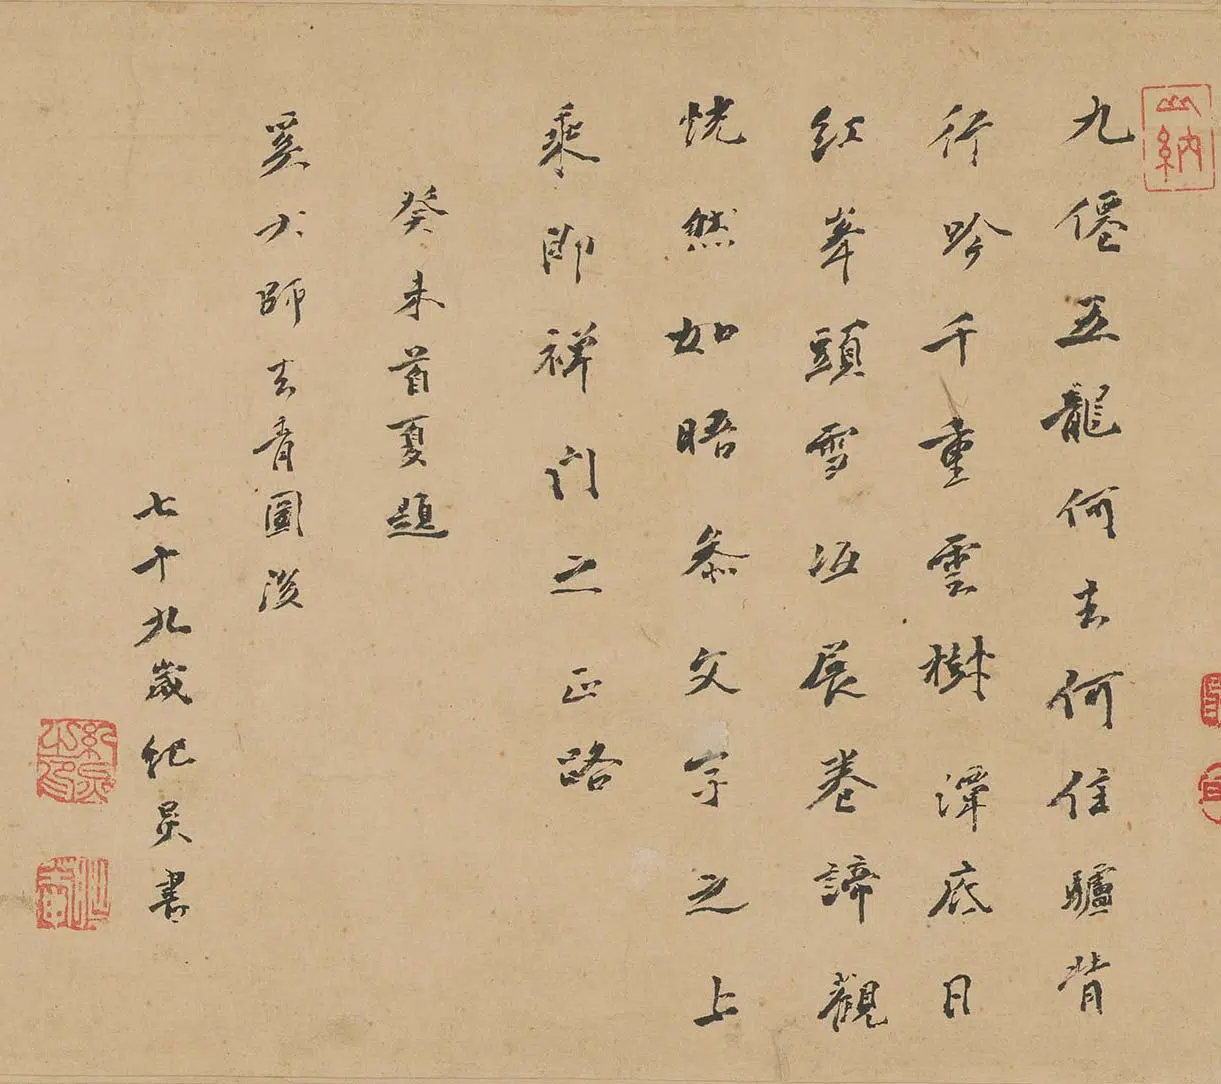 九僊五龍何去何住驢背
行吟千重雲樹潭底日
紅峯頭雪沍展卷諦觀
恍然如晤叅文字之上
乘即禪門之正路
癸未首夏題
奚大師去青圖後
七十九歲紀昃書
山納